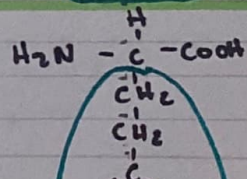 H
H₂N - C - COOH
CH₂
CH₂
C